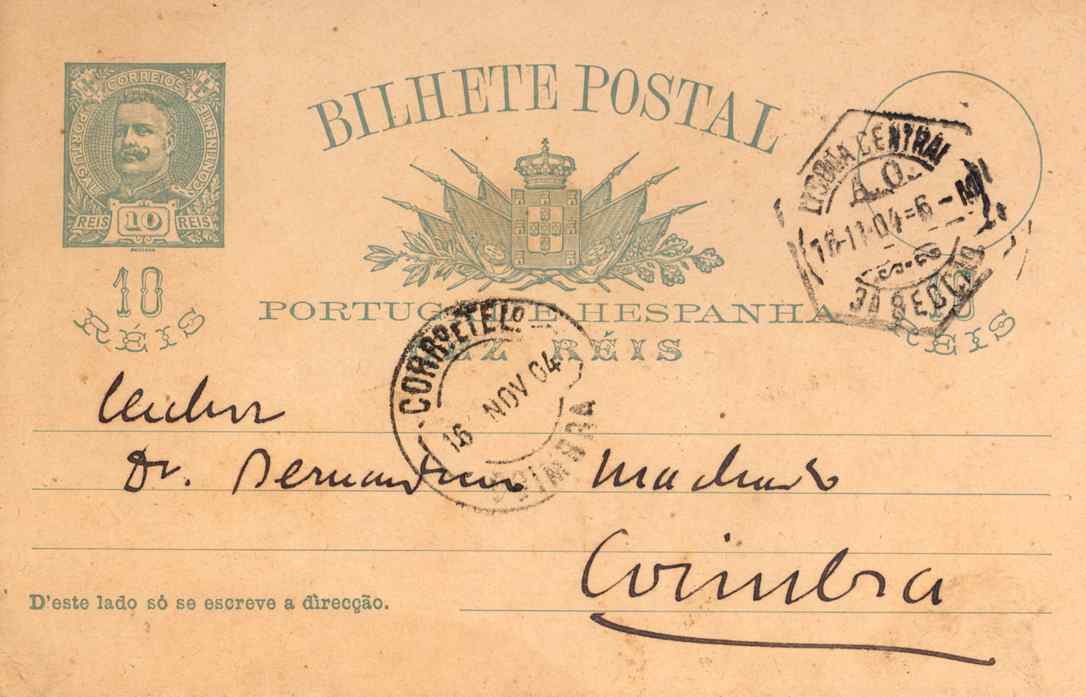 CORREIOS
PORTUGAL
CONTINENTE
REIS 10 REIS
BILHETE POSTAL
10
RÉIS
PORTUGAL E HESPANHA
DEZ RÉIS
10
RÉIS
LISBOA CENTRAL
A.O.
16-11-04=6-M
3A SECÇÃO
CORRO E TELO
16 NOV 04
COIMBRA
Dr. Bernardino Machado
Coimbra
D'este lado só se escreve a direcção.